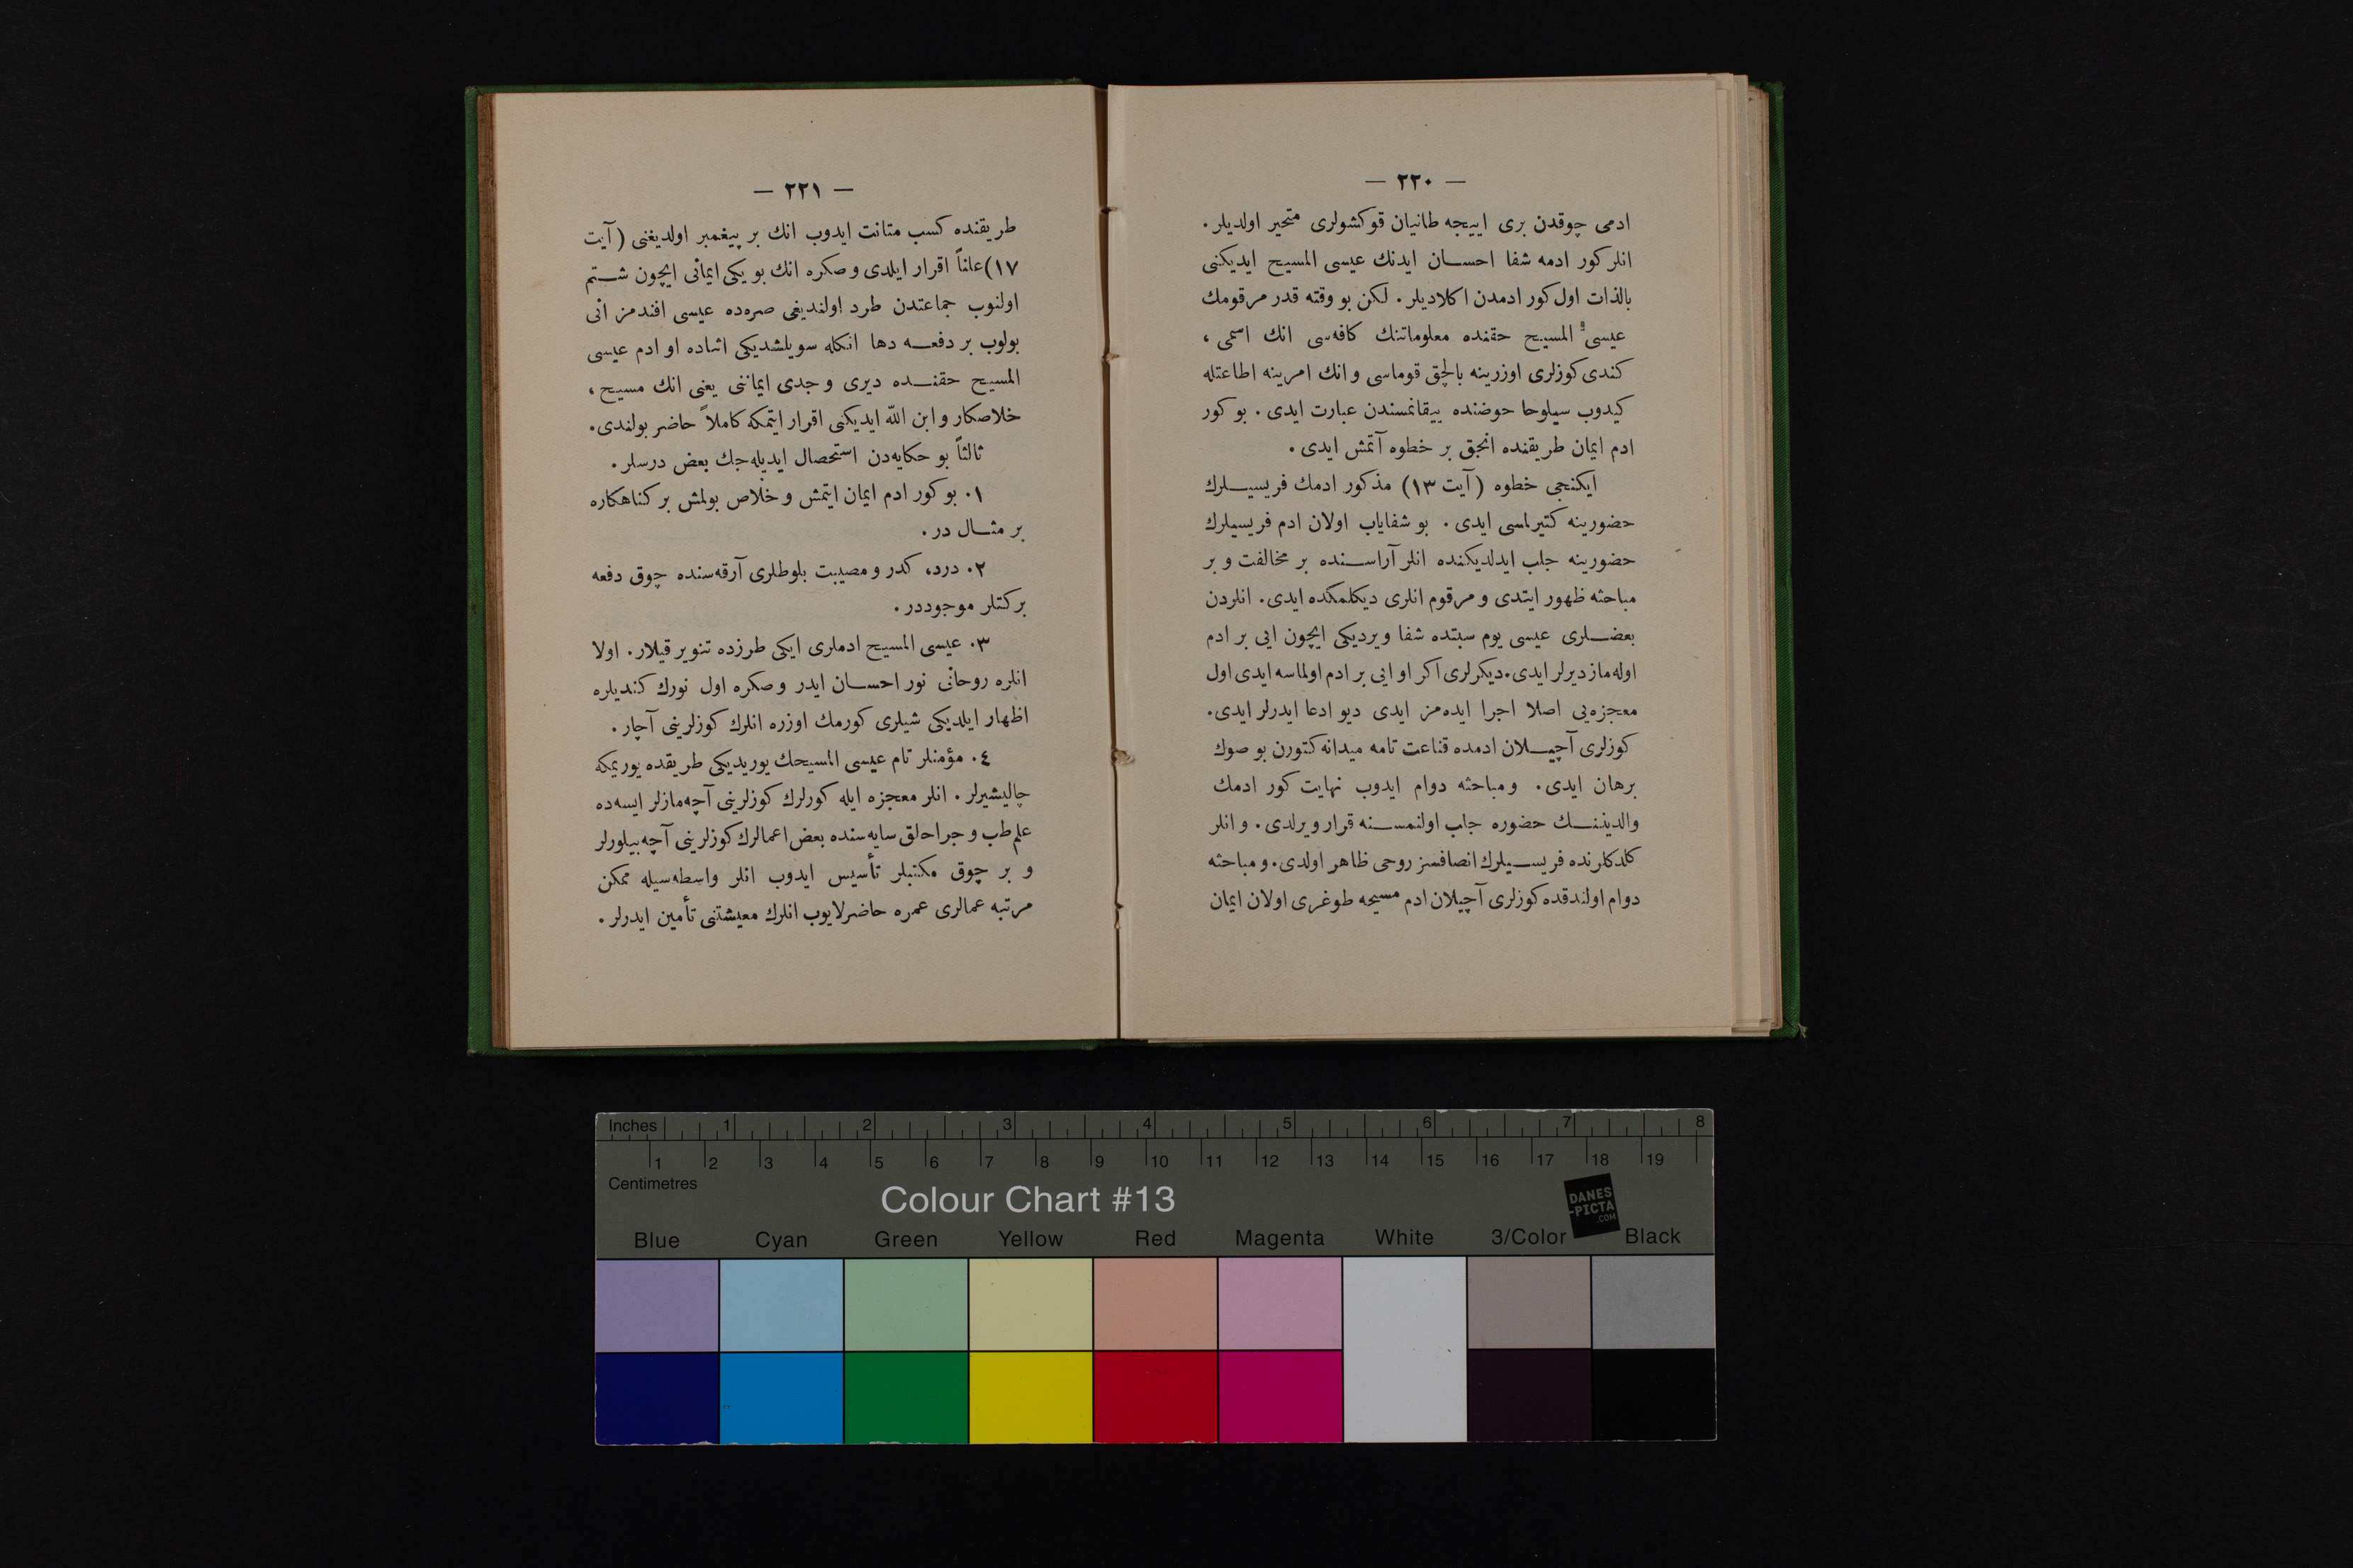 — ٢٢٠ —
ادمى چوقدن برى اييجه طانيان قوكشولرى متحير اولديلر .
انلر كور ادمه شفا احسان ايدنك عيسى المسيح ايديكنى
بالذات اول كور ادمدن اكلاديلر . لكن بو وقته قدر مرقومك
عيسىُ المسيح حقنده معلوماتنك كافه‌سى انك اسمى ،
كندى كوزلرى اوزرينه بالچق قوماسى و انك امرينه اطاعتله
كيدوب سيلوحا حوضنده ييقانمسندن عبارت ايدى . بو كور
ادم ايمان طريقنده انجق بر خطوه آتمش ايدى .
ايكنجى خطوه (آيت ١٣) مذكور ادمك فريسيلرك
حضورينه كتيرلمسى ايدى . بو شفاياب اولان ادم فريسيلرك
حضورينه جلب ايدلديكنده انلر آراسنده بر مخالفت و بر
مباحثه ظهور ايتدى و مرقوم انلرى ديكلمكده ايدى . انلردن
بعضلرى عيسى يوم سبتده شفا ويرديكى ايچون ايى بر ادم
اوله‌ماز ديرلر ايدى . ديكرلرى اكر او ايى بر ادم اولماسه ايدى اول
معجزه‌يى اصلا اجرا ايده‌مز ايدى ديو ادعا ايدرلر ايدى .
كوزلرى آچيلان ادمده قناعت تامه ميدانه كتورن بو صوك
برهان ايدى . و مباحثه دوام ايدوب نهايت كور ادمك
والديننك حضوره جاب اولنمسنه قرار ويرلدى . و انلر
كلدكلرنده فريسيلرك انصافسز روحى ظاهر اولدى . و مباحثه
دوام اولندقده كوزلرى آچيلان ادم مسيحه طوغرى اولان ايمان
— ٢٢١ —
طريقنده كسب متانت ايدوب انك بر پيغمبر اولديغنى (آيت
١٧) علناً اقرار ايلدى و صكره انك بو يكى ايمانى ايچون شتم
اولنوب جماعتدن طرد اولنديغى صره‌ده عيسى افندمز انى
بولوب بر دفعه دها انكله سويلشديكى اثناده او ادم عيسى
المسيح حقنده ديرى و جدى ايماننى يعنى انك مسيح ،
خلاصكار و ابن اللّه ايديكنى اقرار ايتمكه كاملاً حاضر بولندى .
ثالثاً بو حكايه‌دن استحصال ايديله‌جك بعض درسلر .
١ . بو كور ادم ايمان ايتمش و خلاص بولمش بر كناهكاره
بر مثال در .
٢ . درد، كدر و مصيبت بلوطلرى آرقه‌سنده چوق دفعه
بركتلر موجوددر .
٣ . عيسى المسيح ادملرى ايكى طرزده تنوير قيلار . اولا
انلره روحانى نور احسان ايدر و صكره اول نورك كنديلره
اظهار ايلديكى شيلرى كورمك اوزره انلرك كوزلرينى آچار .
٤ . مؤمنلر تام عيسى المسيحك يوريديكى طريقده يوريمكه
چاليشيرلر . انلر معجزه ايله كورلرك كوزلرينى آچه‌مازلر ايسه‌ده
علم طب و جراحلق سايه‌سنده بعض اعمالرك كوزلرينى آچه‌بيلورلر
و بر چوق مكتبلر تأسيس ايدوب انلر واسطه‌سيله ممكن
مرتبه عمالرى عمره حاضرلايوب انلرك معيشتنى تأمين ايدرلر .
Inches 1 2 3 4 5 6 7 8
1 2 3 4 5 6 7 8 9 10 11 12 13 14 15 16 17 18 19
Centimetres
Colour Chart #13
DANES
-PICTA
.COM
Blue Cyan Green Yellow Red Magenta White 3/Color Black